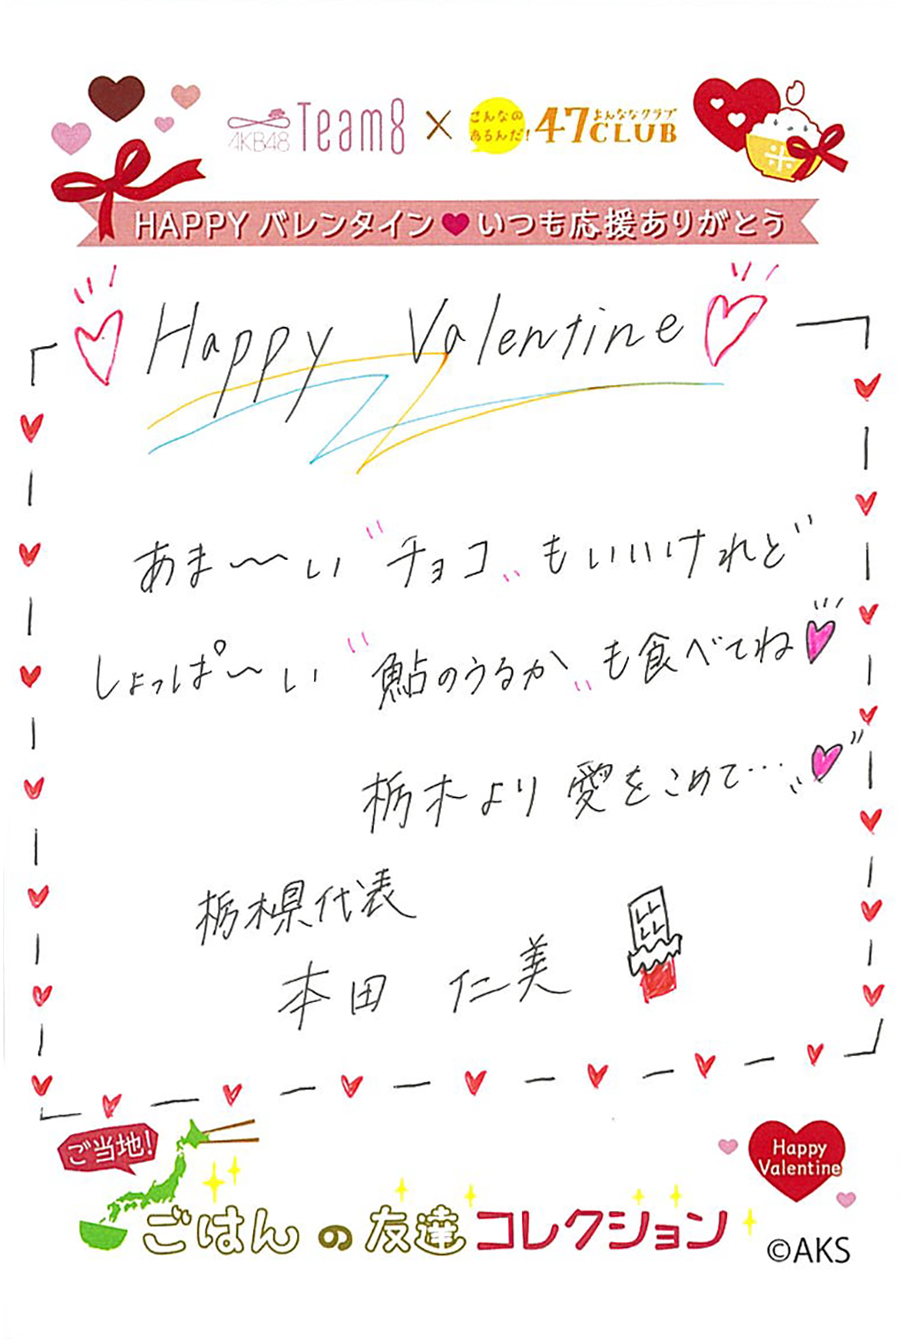 AKB48 Team8 × こんなの あるんだ! 47CLUB よんななクラブ
HAPPY バレンタイン♥いつも応援ありがとう
Happy Valentine
あま〜い"チョコ"もいいけれど
しょっぱ〜い"鮎のうるか"も食べてね♥
栃木より 愛をこめて…♥
栃木県代表
本田 仁美
ご当地!
ごはんの友達コレクション
Happy
Valentine
©AKS